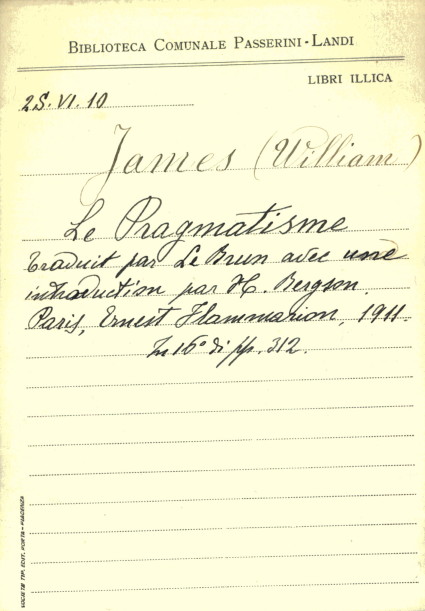 BIBLIOTECA COMUNALE PASSERINI-LANDI
LIBRI ILLICA
2S.VI.10
James (William)
Le Pragmatisme
traduit par Le Brun avec une
introduction par H. Bergson.
Paris, Ernest Flammarion, 1911.
In 16° di pp. 312.
SOCIETÀ TIP. EDIT. PORTA - PIACENZA